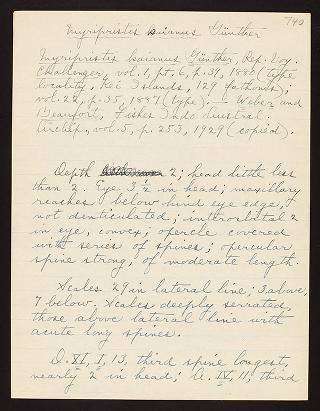 740
Myripristis kaianus Günther
Myripristis kaianus Günther, Rep. Voy.
Challenger, vol. 1, pt. 6, p. 39, 1880 (type
locality, Kei Islands, 129 fathoms);
vol. 22, p. 35, 1887 (type). — Weber and
Beaufort, Fishes Indo Austral.
Archip., vol. 5, p. 253, 1929 (copied).
Depth 2; head little less
than 2. Eye 3 1/2 in head; maxillary
reaches below hind eye edge,
not denticulated; interorbital 2
in eye, convex; opercle covered
with series of spines; opercular
spine strong, of moderate length.
Scales 29 in lateral line, 3 above,
7 below. Scales deeply serrated,
those above lateral line with
acute long spines.
D. XI, I, 13, third spine longest,
nearly 2 in head; A. IV, 11; third